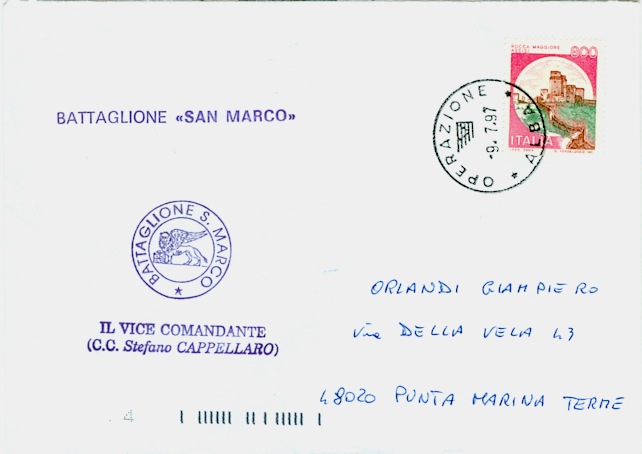 ROCCA MAGGIORE
ASSISI
800
ITALIA
OPERAZIONE ★ ALBA ★
-9.7.97
BATTAGLIONE «SAN MARCO»
BATTAGLIONE S. MARCO
IL VICE COMANDANTE
(C.C. Stefano CAPPELLARO)
ORLANDI GIAMPIERO
Via DELLA VELA 43
48020 PUNTA MARINA TERME
4